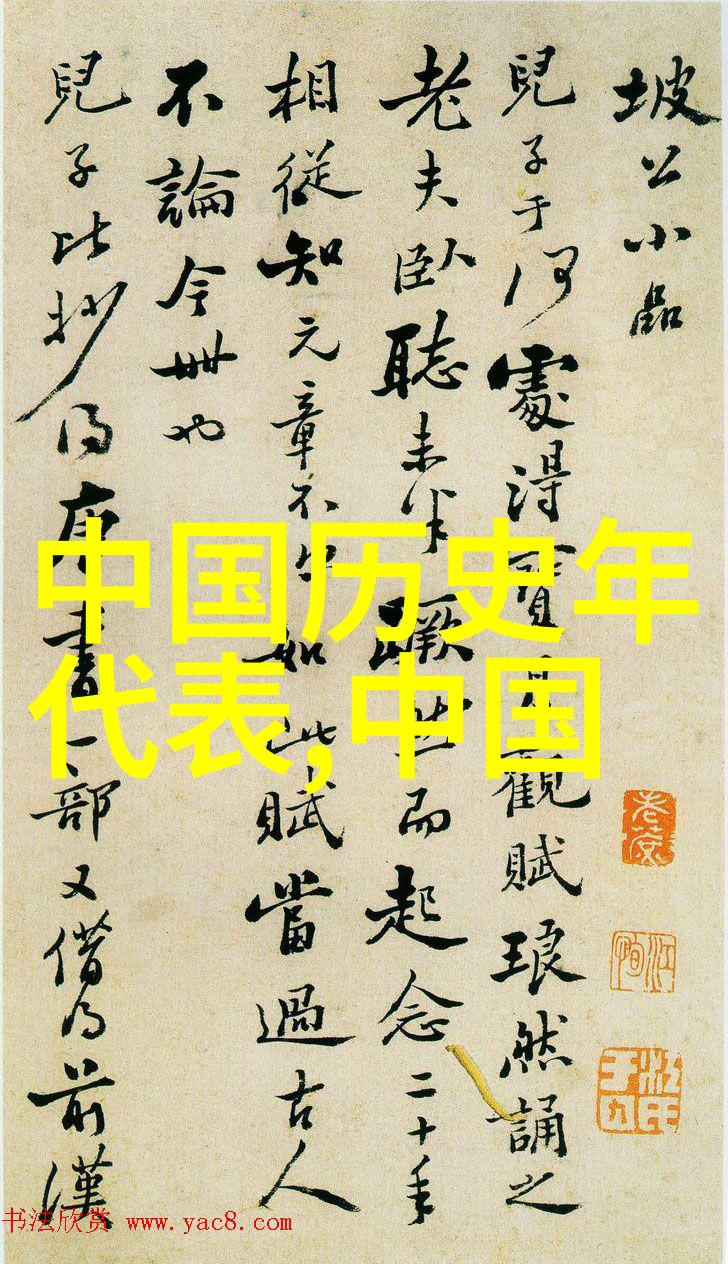 坡公小品
兒子于何處得寶月觀賦琅然誦之
老夫臥聽未半蹶然而起念二十年
相從知元章不盡如此賦當過古人
不論今世也
兒子比抄得唐書一部又借得前漢
中国历史年
代表,中国
书法欣赏 www.yac8.com